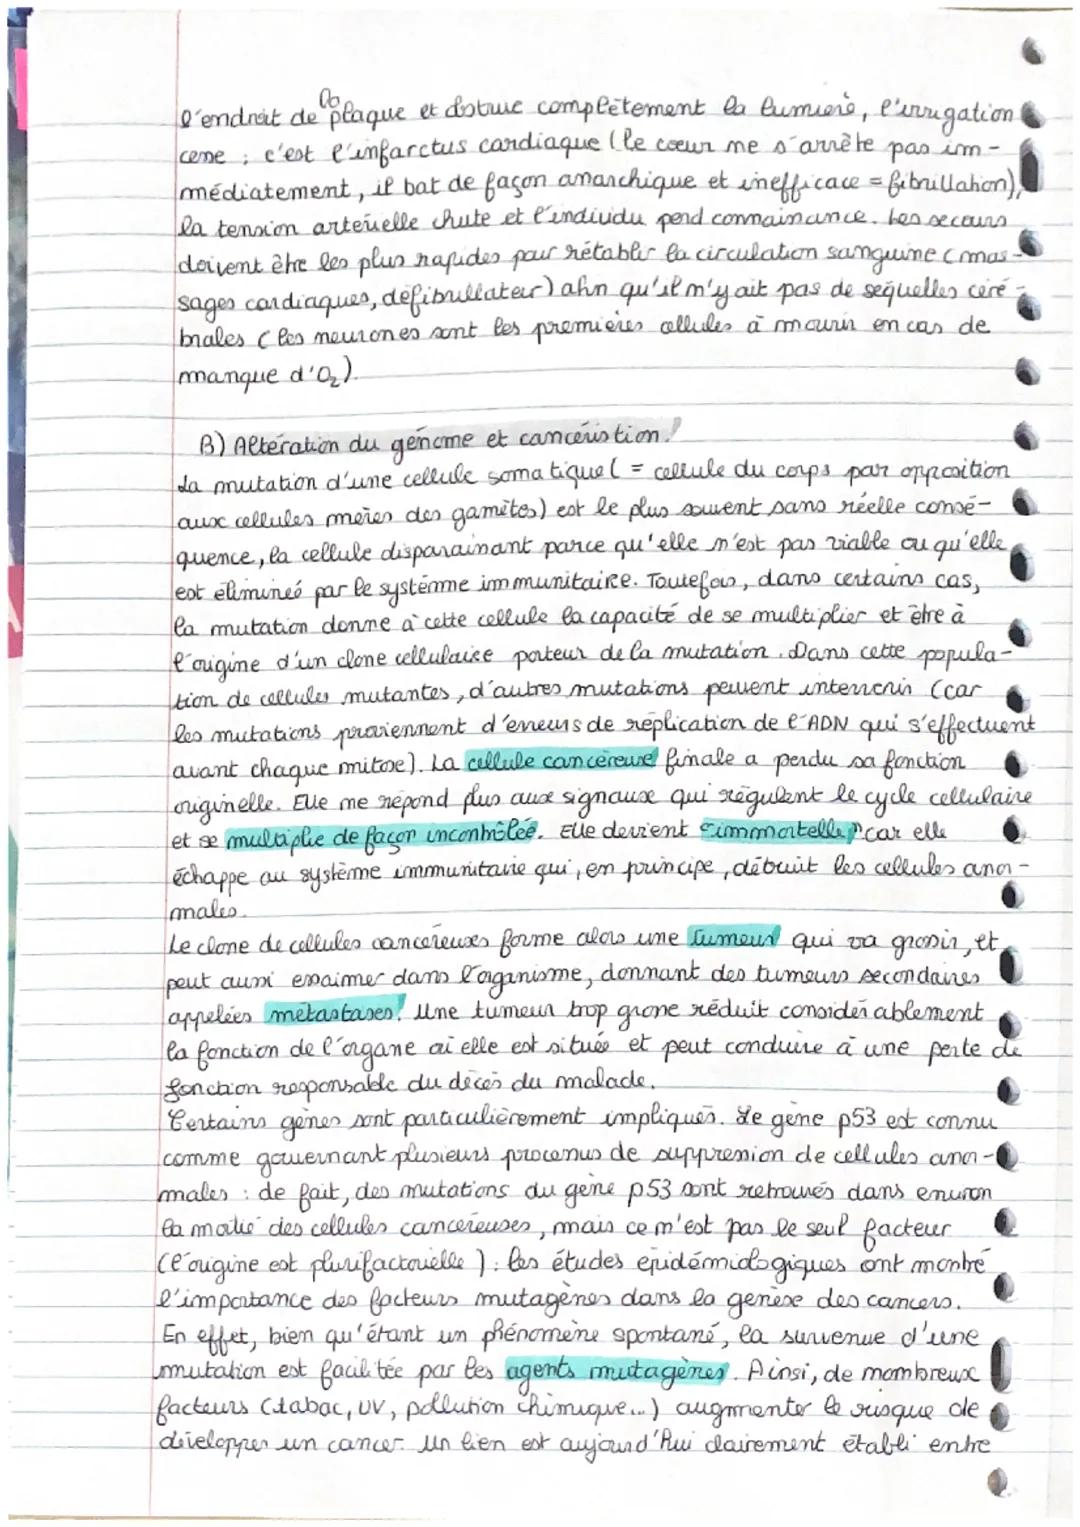 l'endroit de la plaque et obstrue complètement la lumière, l'irrigation
cesse ; c'est l'infarctus cardiaque (le cœur ne s'arrête pas im-
médiatement, il bat de façon anarchique et inefficace = fibrillation),
la tension artérielle chute et l'individu perd connaissance. Les secours
doivent être les plus rapides pour rétablir la circulation sanguine (mas-
sages cardiaques, défibrillateur) afin qu'il n'y ait pas de séquelles céré-
brales (les neurones sont les premières cellules à mourir en cas de
manque d'O₂).
B) Altération du génome et cancéristion.
La mutation d'une cellule somatique ( = cellule du corps par opposition
aux cellules mères des gamètes) est le plus souvent sans réelle consé-
quence, la cellule disparaissant parce qu'elle n'est pas viable ou qu'elle
est éliminée par le système immunitaire. Toutefois, dans certains cas,
la mutation donne à cette cellule la capacité de se multiplier et être à
l'origine d'un clone cellulaire porteur de la mutation. Dans cette popula-
tion de cellules mutantes, d'autres mutations peuvent intervenir (car
les mutations proviennent d'erreurs de réplication de l'ADN qui s'effectuent
avant chaque mitose). La cellule cancéreuse finale a perdu sa fonction
originelle. Elle ne répond plus aux signaux qui régulent le cycle cellulaire
et se multiplie de façon incontrôlée. Elle devient "immortelle" car elle
échappe au système immunitaire qui, en principe, détruit les cellules anor-
males.
Le clone de cellules cancéreuses forme alors une tumeur qui va grossir, et
peut aussi essaimer dans l'organisme, donnant des tumeurs secondaires
appelées métastases. Une tumeur trop grosse réduit considérablement
la fonction de l'organe où elle est située et peut conduire à une perte de
fonction responsable du décès du malade.
Certains gènes sont particulièrement impliqués. Le gène p53 est connu
comme gouvernant plusieurs processus de suppression de cellules anor-
males : de fait, des mutations du gène p53 sont retrouvés dans environ
la moitié des cellules cancéreuses, mais ce n'est pas le seul facteur
(l'origine est plurifactorielle ) : les études épidémiologiques ont montré
l'importance des facteurs mutagènes dans la genèse des cancers.
En effet, bien qu'étant un phénomène spontané, la survenue d'une
mutation est facilitée par les agents mutagènes. Ainsi, de nombreux
facteurs (tabac, UV, pollution chimique...) augmenter le risque de
développer un cancer. Un lien est aujourd'hui clairement établi entre